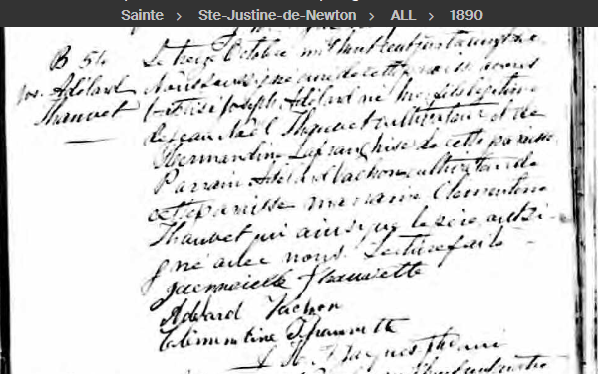 Sainte > Ste-Justine-de-Newton > ALL > 1890
B 54
Jos. Adélard
Thauvet
Le treize Octobre mil huit cent quatre vingt dix
Nous soussigné curé de cette paroisse avons
baptisé Joseph Adélard né hier fils légitime
de Jean Noël Thauvet cultivateur et de
Hermandine Lafranchise de cette paroisse
Parrain Adélard Vachon cultivateur de
cette paroisse marraine Clementine
Thauvet qui ainsi que le père ont si-
gné avec nous. Lecture faite
Adélard Vachon
Clémentine